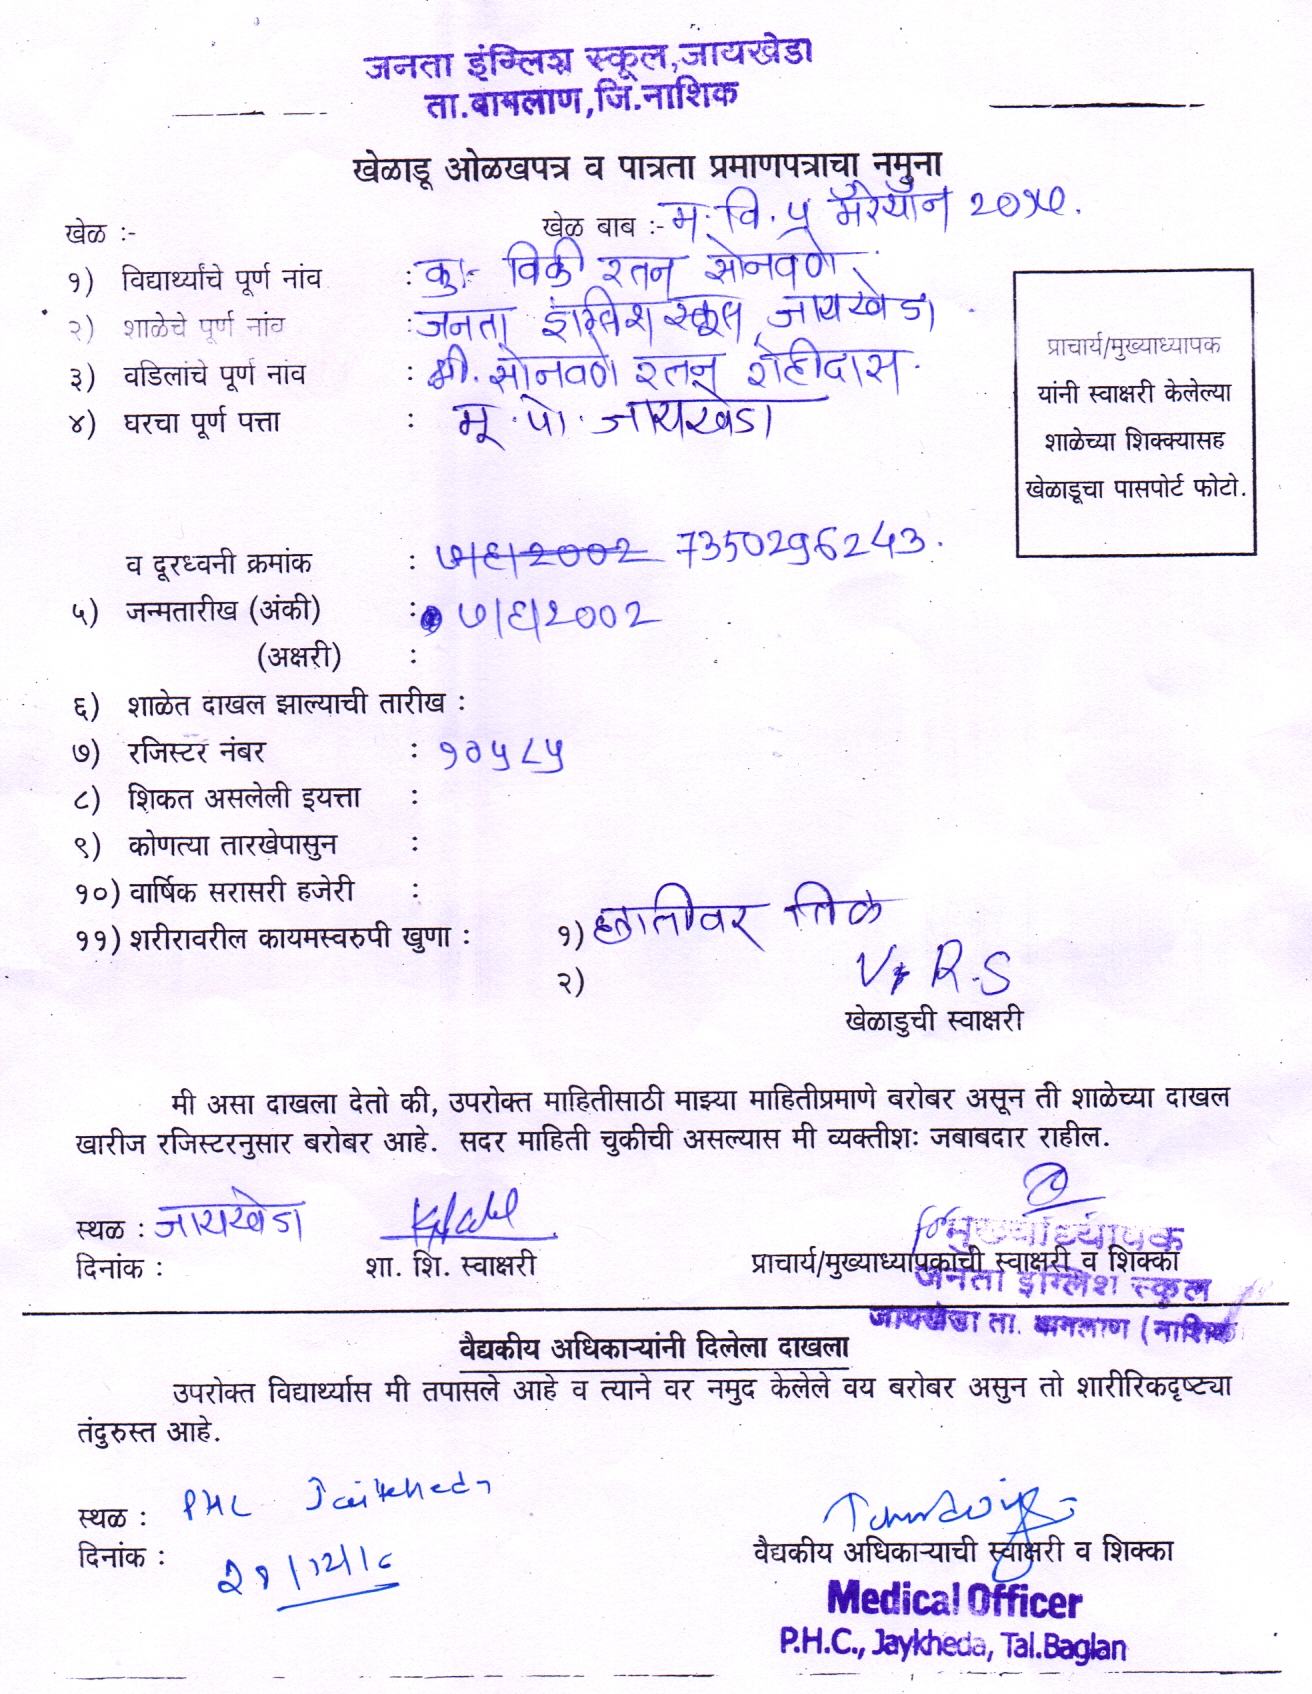 जनता इंग्लिश स्कूल,जायखेडा
ता.बागलाण,जि.नाशिक
खेळाडू ओळखपत्र व पात्रता प्रमाणपत्राचा नमुना
खेळ :- खेळ बाब :- म. वि. प्र मॅरेथॉन
१) विद्यार्थ्यांचे पूर्ण नांव : कु. विकी रतन सोनवणे.
२) शाळेचे पूर्ण नांव : जनता इंग्लिश स्कूल, जायखेडा.
३) वडिलांचे पूर्ण नांव : श्री. सोनवणे रतन रोहीदास.
४) घरचा पूर्ण पत्ता : मू. पो. जायखेडा
प्राचार्य/मुख्याध्यापक
यांनी स्वाक्षरी केलेल्या
शाळेच्या शिक्क्यासह
खेळाडूचा पासपोर्ट फोटो.
व दूरध्वनी क्रमांक : ७/६/2002 7350296243.
५) जन्मतारीख (अंकी) : ७/६/2002
(अक्षरी) :
६) शाळेत दाखल झाल्याची तारीख :
७) रजिस्टर नंबर : १०५८५
८) शिकत असलेली इयत्ता :
९) कोणत्या तारखेपासुन :
१०) वार्षिक सरासरी हजेरी :
११) शरीरावरील कायमस्वरुपी खुणा : १) छातीवर तिळ
२)
V R.S
खेळाडुची स्वाक्षरी
मी असा दाखला देतो की, उपरोक्त माहितीसाठी माझ्या माहितीप्रमाणे बरोबर असून ती शाळेच्या दाखल
खारीज रजिस्टरनुसार बरोबर आहे. सदर माहिती चुकीची असल्यास मी व्यक्तीशः जबाबदार राहील.
स्थळ : जायखेडा
दिनांक : शा. शि. स्वाक्षरी प्राचार्य/मुख्याध्यापकाची स्वाक्षरी व शिक्का
for मुख्याध्यापक
जनता इंग्लिश स्कुल
जायखेडा ता. बागलाण (नाशिक
वैद्यकीय अधिकाऱ्यांनी दिलेला दाखला
उपरोक्त विद्यार्थ्यास मी तपासले आहे व त्याने वर नमुद केलेले वय बरोबर असुन तो शारीरिकदृष्ट्या
तंदुरुस्त आहे.
स्थळ : PHC Jaikheda
दिनांक : वैद्यकीय अधिकाऱ्याची स्वाक्षरी व शिक्का
Medical Officer
P.H.C., Jaykheda, Tal.Baglan